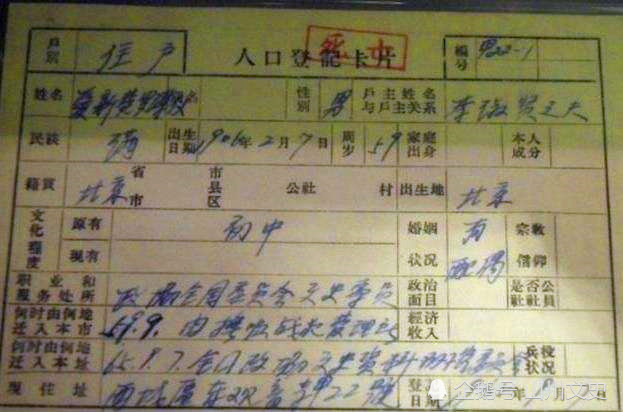 户别 住户 人口登记卡片 死亡 编号
姓名 爱新觉罗溥仪 性别 男 户主姓名与户主关系 李淑贤之夫
民族 满 出生日期 1906年2月7日 周岁 59 家庭出身 本人成分
籍贯 北京 省市 市县区 公社 村 出生地 北京
文化程度 原有 初中 婚姻状况 有配偶 宗教信仰
现有
职业和服务处所 政协全国委员会文史专员 政治面目 是否公社社员
何时由何地迁入本市 59.9. 由抚顺战犯管理所 经济收入
何时由何地迁入本址 65.8.7. 全国政协文史资料 兵役状况
现住址 西城区东观音寺22号 登记日期 月 日
企鹅号